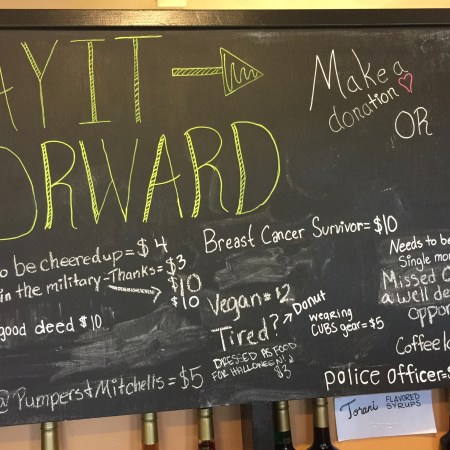 AY IT
ORWARD
Make a
donation
OR
o be cheered up = $4
in the military - Thanks = $3
$10
$10
good deed $10
@ Pumpers & Mitchells = $5
Breast Cancer Survivor = $10
Vegan = $2
Tired? Donut
DRESSED AS FOOD
FOR HALLOWEEN!
$3
wearing
CUBS gear = $5
Needs to be
Single mo
Missed C
a well de
oppor
Coffee l
police officer =
Torani FLAVORED
SYRUPS